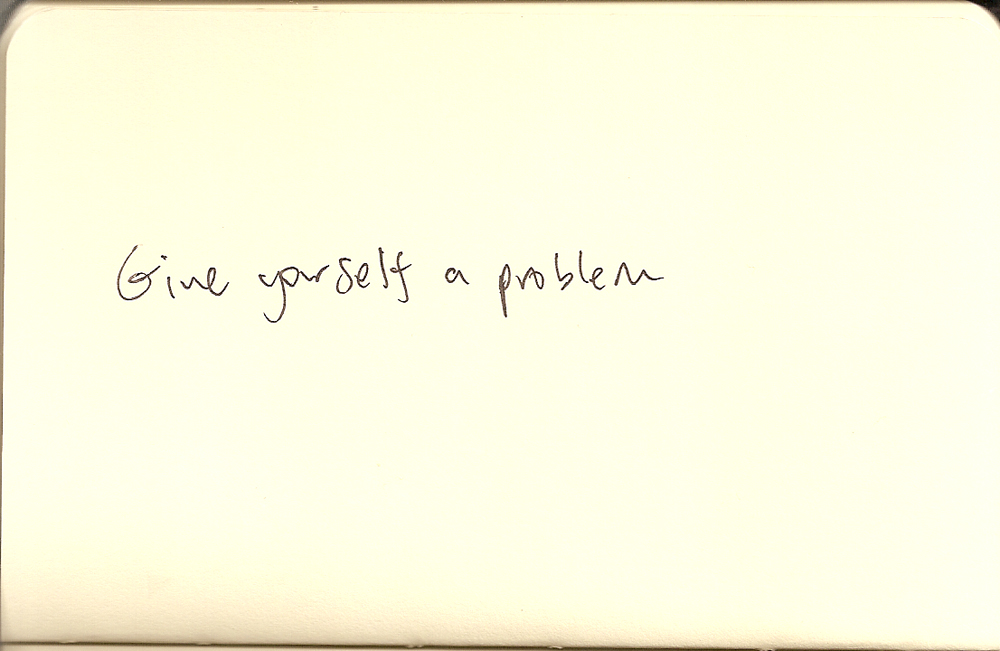 Give yourself a problem